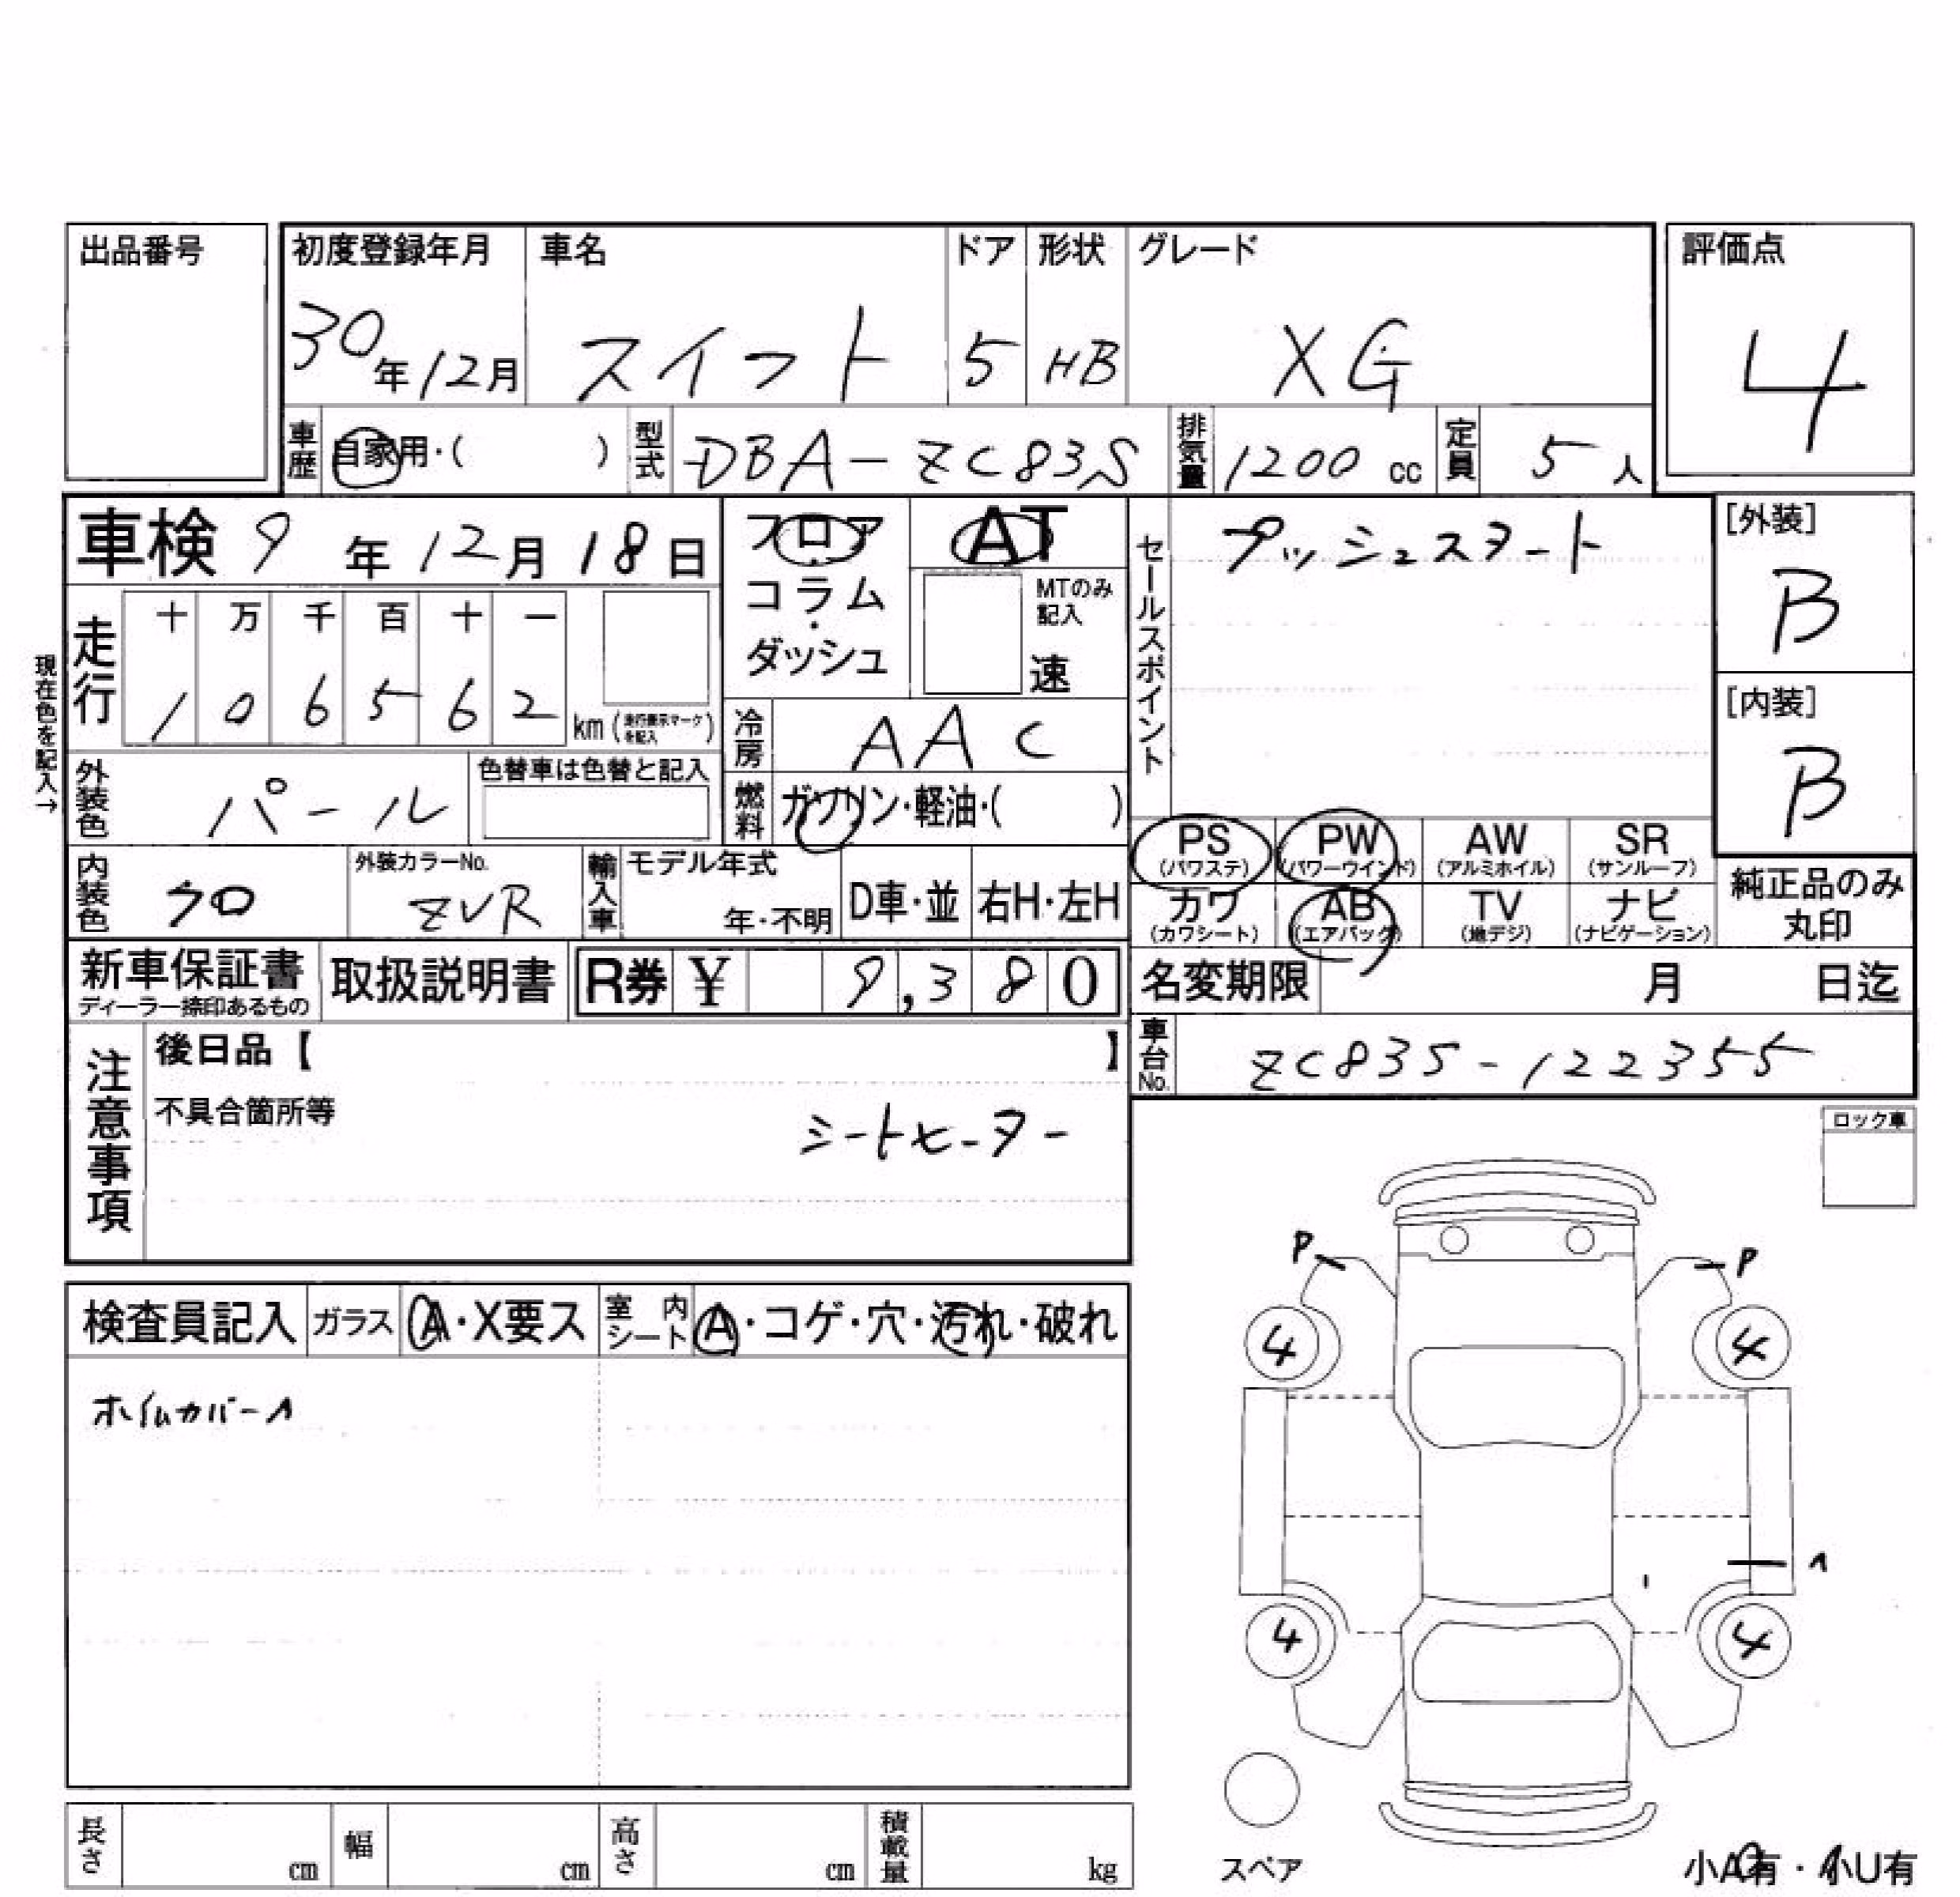 出品番号
初度登録年月 車名 ドア 形状 グレード 評価点
30年12月 スイフト 5 HB XG 4
車歴 自家用・( ) 型式 DBA-ZC83S 排気量 1200 cc 定員 5 人
車検 9 年 12 月 18 日
フロア・コラム・ダッシュ
AT
MTのみ記入
速
セールスポイント プッシュスタート
[外装] B
[内装] B
現在色を記入→
走行 十 万 千 百 十 一
1 0 6 5 6 2 km (走行表示マークを記入)
冷房 AAC
外装色 パール 色替車は色替と記入
燃料 ガソリン・軽油・( )
PS (パワステ) PW (パワーウインド) AW (アルミホイル) SR (サンルーフ)
カワ (カワシート) AB (エアバック) TV (地デジ) ナビ (ナビゲーション)
純正品のみ丸印
内装色 クロ 外装カラーNo. ZVR 輸入車 モデル年式 年・不明 D車・並 右H・左H
新車保証書 ディーラー捺印あるもの 取扱説明書 R券 ¥ 9,380
名変期限 月 日迄
車台No. ZC83S-122355
注意事項 後日品【 】
不具合箇所等
シートヒーター
ロック車
検査員記入 ガラス A・X要ス 室内シート A・コゲ・穴・汚れ・破れ
ホイルカバーA
P P
4 4
A
4 4
スペア
小A有・小U有
長さ cm 幅 cm 高さ cm 積載量 kg